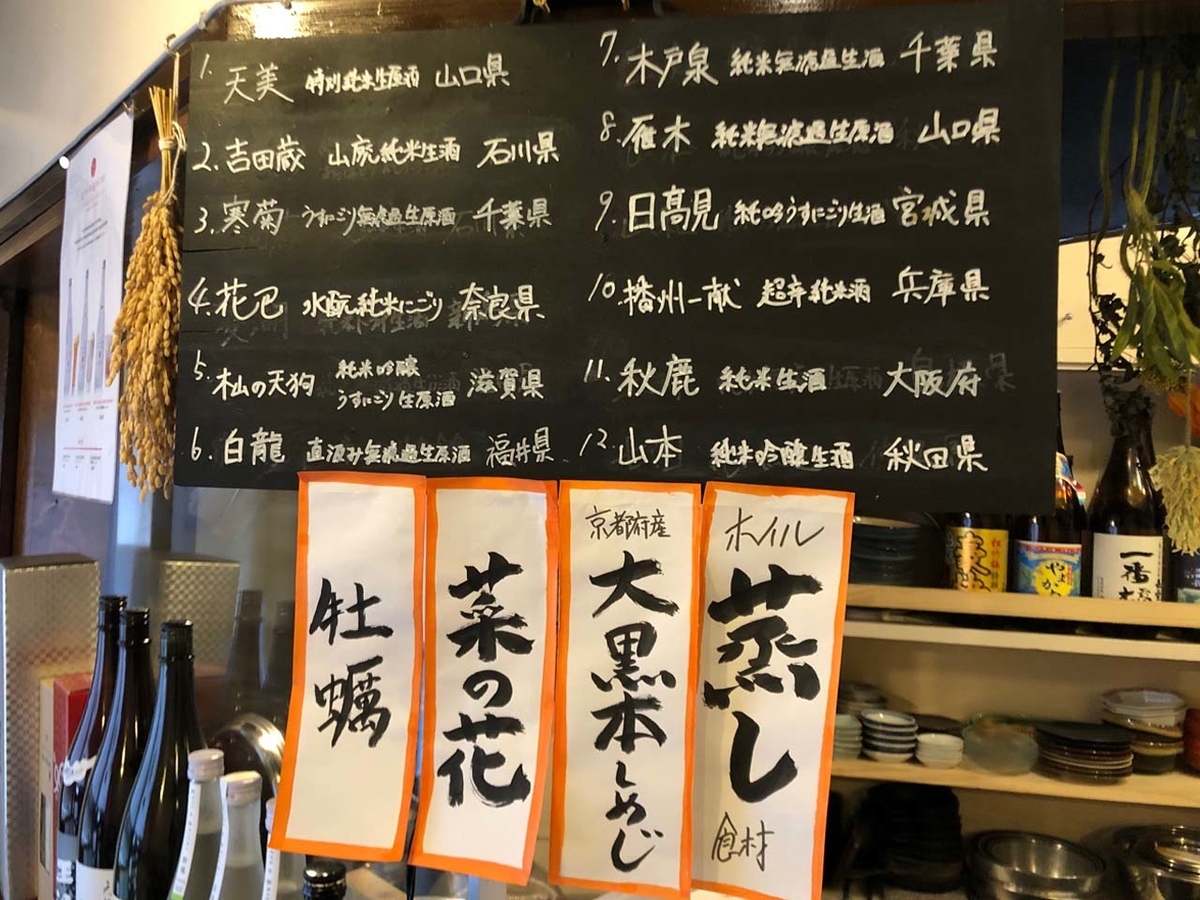 1. 天美 特別純米生原酒 山口県
2. 吉田蔵 山廃純米生酒 石川県
3. 寒菊 うすにごり無濾過生原酒 千葉県
4. 花巴 水酛純米にごり 奈良県
5. 松の天狗 純米吟醸 うすにごり生原酒 滋賀県
6. 白龍 直汲み無濾過生原酒 福井県
7. 木戸泉 純米無濾過生酒 千葉県
8. 雁木 純米無濾過生原酒 山口県
9. 日高見 純吟うすにごり生酒 宮城県
10. 播州一献 超辛純米酒 兵庫県
11. 秋鹿 純米生酒 大阪府
12. 山本 純米吟醸生酒 秋田県
ホイル
蒸し
食材
京都府産
大黒本しめじ
菜の花
牡蠣